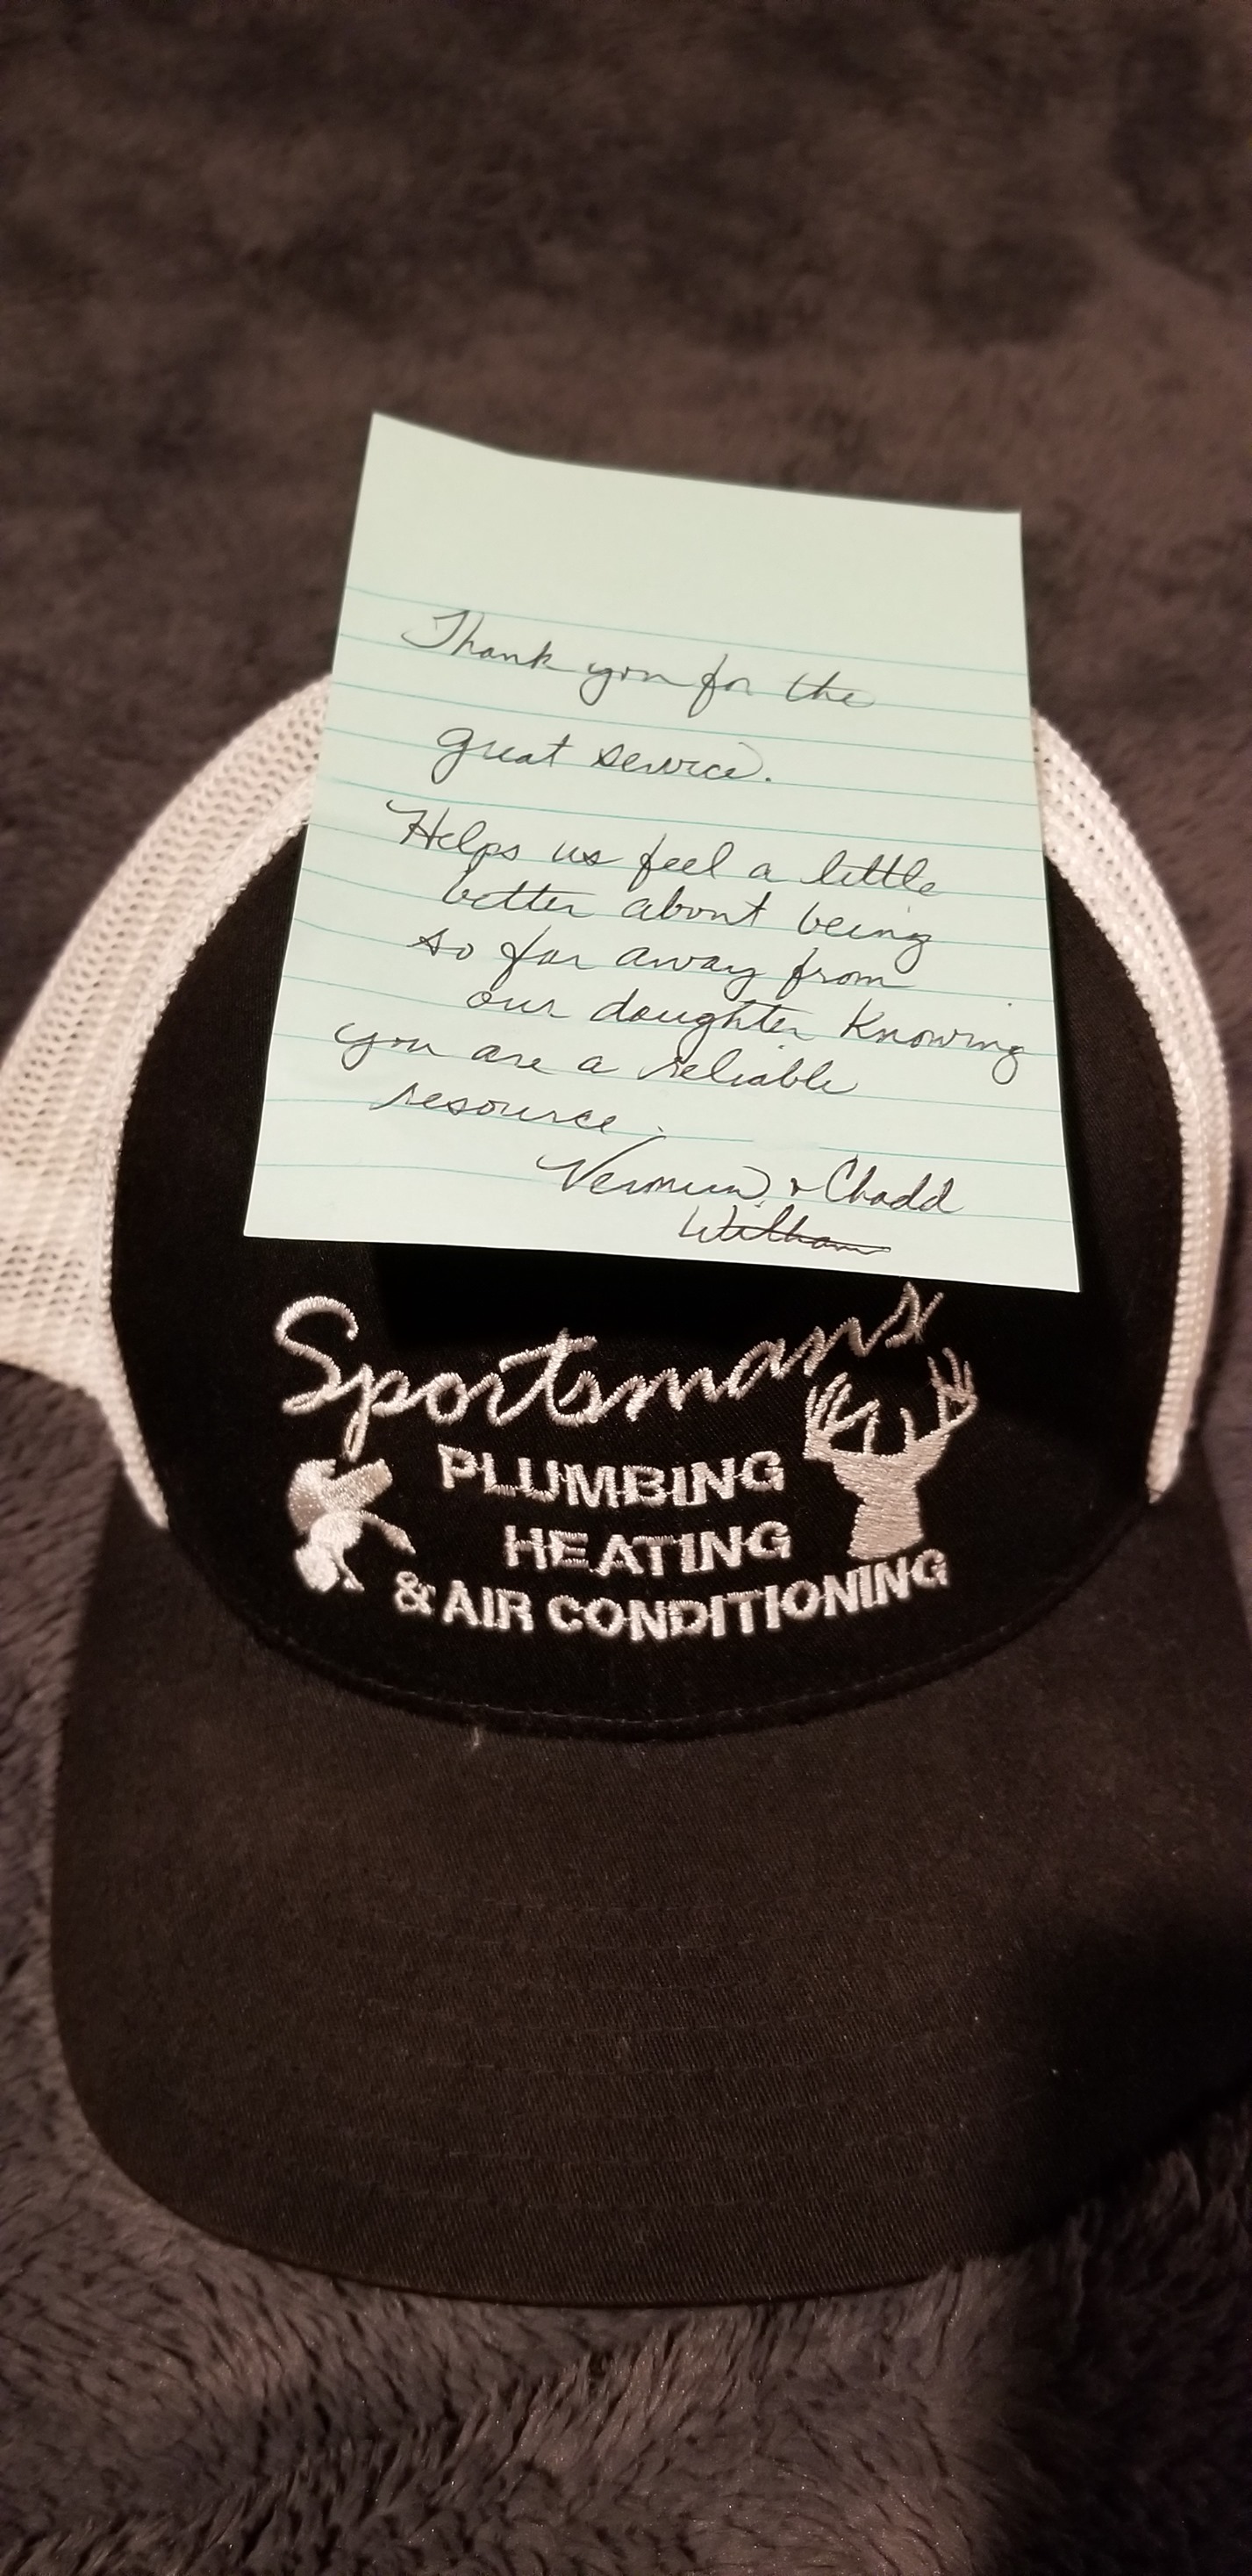 Thank you for the
great service.
Helps us feel a little
better about being
so far away from
our daughter knowing
you are a reliable
resource.
& Chadd
Sportsman's
PLUMBING
HEATING
& AIR CONDITIONING